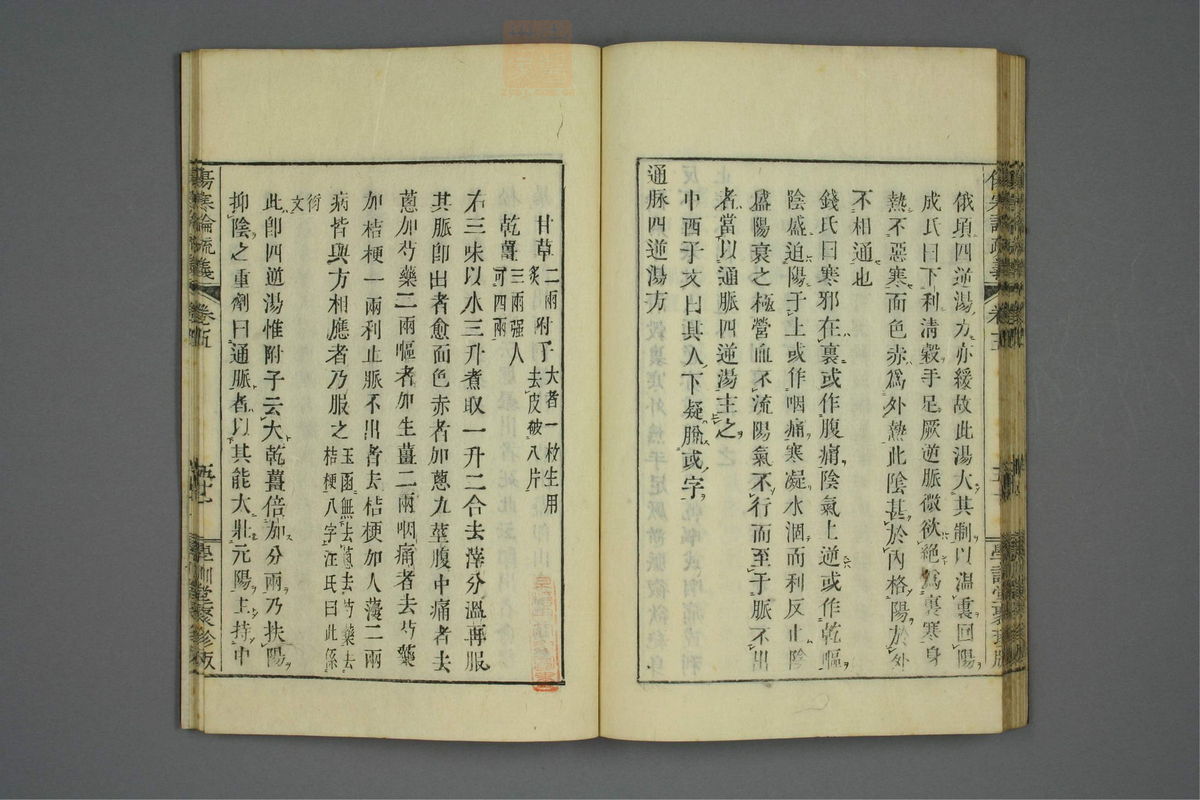 俄頃四逆湯方亦緩故此湯大其制以溫裏回陽
成氏曰下利清穀手足厥逆脈微欲絕爲裏寒身
熱不惡寒而色赤爲外熱此陰甚於內格陽於外
不相通也
錢氏曰寒邪在裏或作腹痛陰氣上逆或作乾嘔
陰盛迫陽于上或作咽痛寒凝水涸而利反止陰
盛陽衰之極營血不流陽氣不行而至于脈不出
者當以通脈四逆湯主之
中西子文曰其人下疑脫或字
通脈四逆湯方
甘草二兩炙附子大者一枚生用去皮破八片
乾薑三兩强人可四兩
右三味以水三升煮取一升二合去滓分溫再服
其脈卽出者愈面色赤者加蔥九莖腹中痛者去
蔥加芍藥二兩嘔者加生薑二兩咽痛者去芍藥
加桔梗一兩利止脈不出者去桔梗加人薓二兩
病皆與方相應者乃服之玉函無去蔥去芍藥去桔梗八字汪氏曰此係
衍文
此卽四逆湯惟附子云大乾薑倍加分兩乃扶陽
抑陰之重劑曰通脈者以其能大壯元陽主持中
傷寒論疏義
卷五
五十一
學訓堂聚珍版